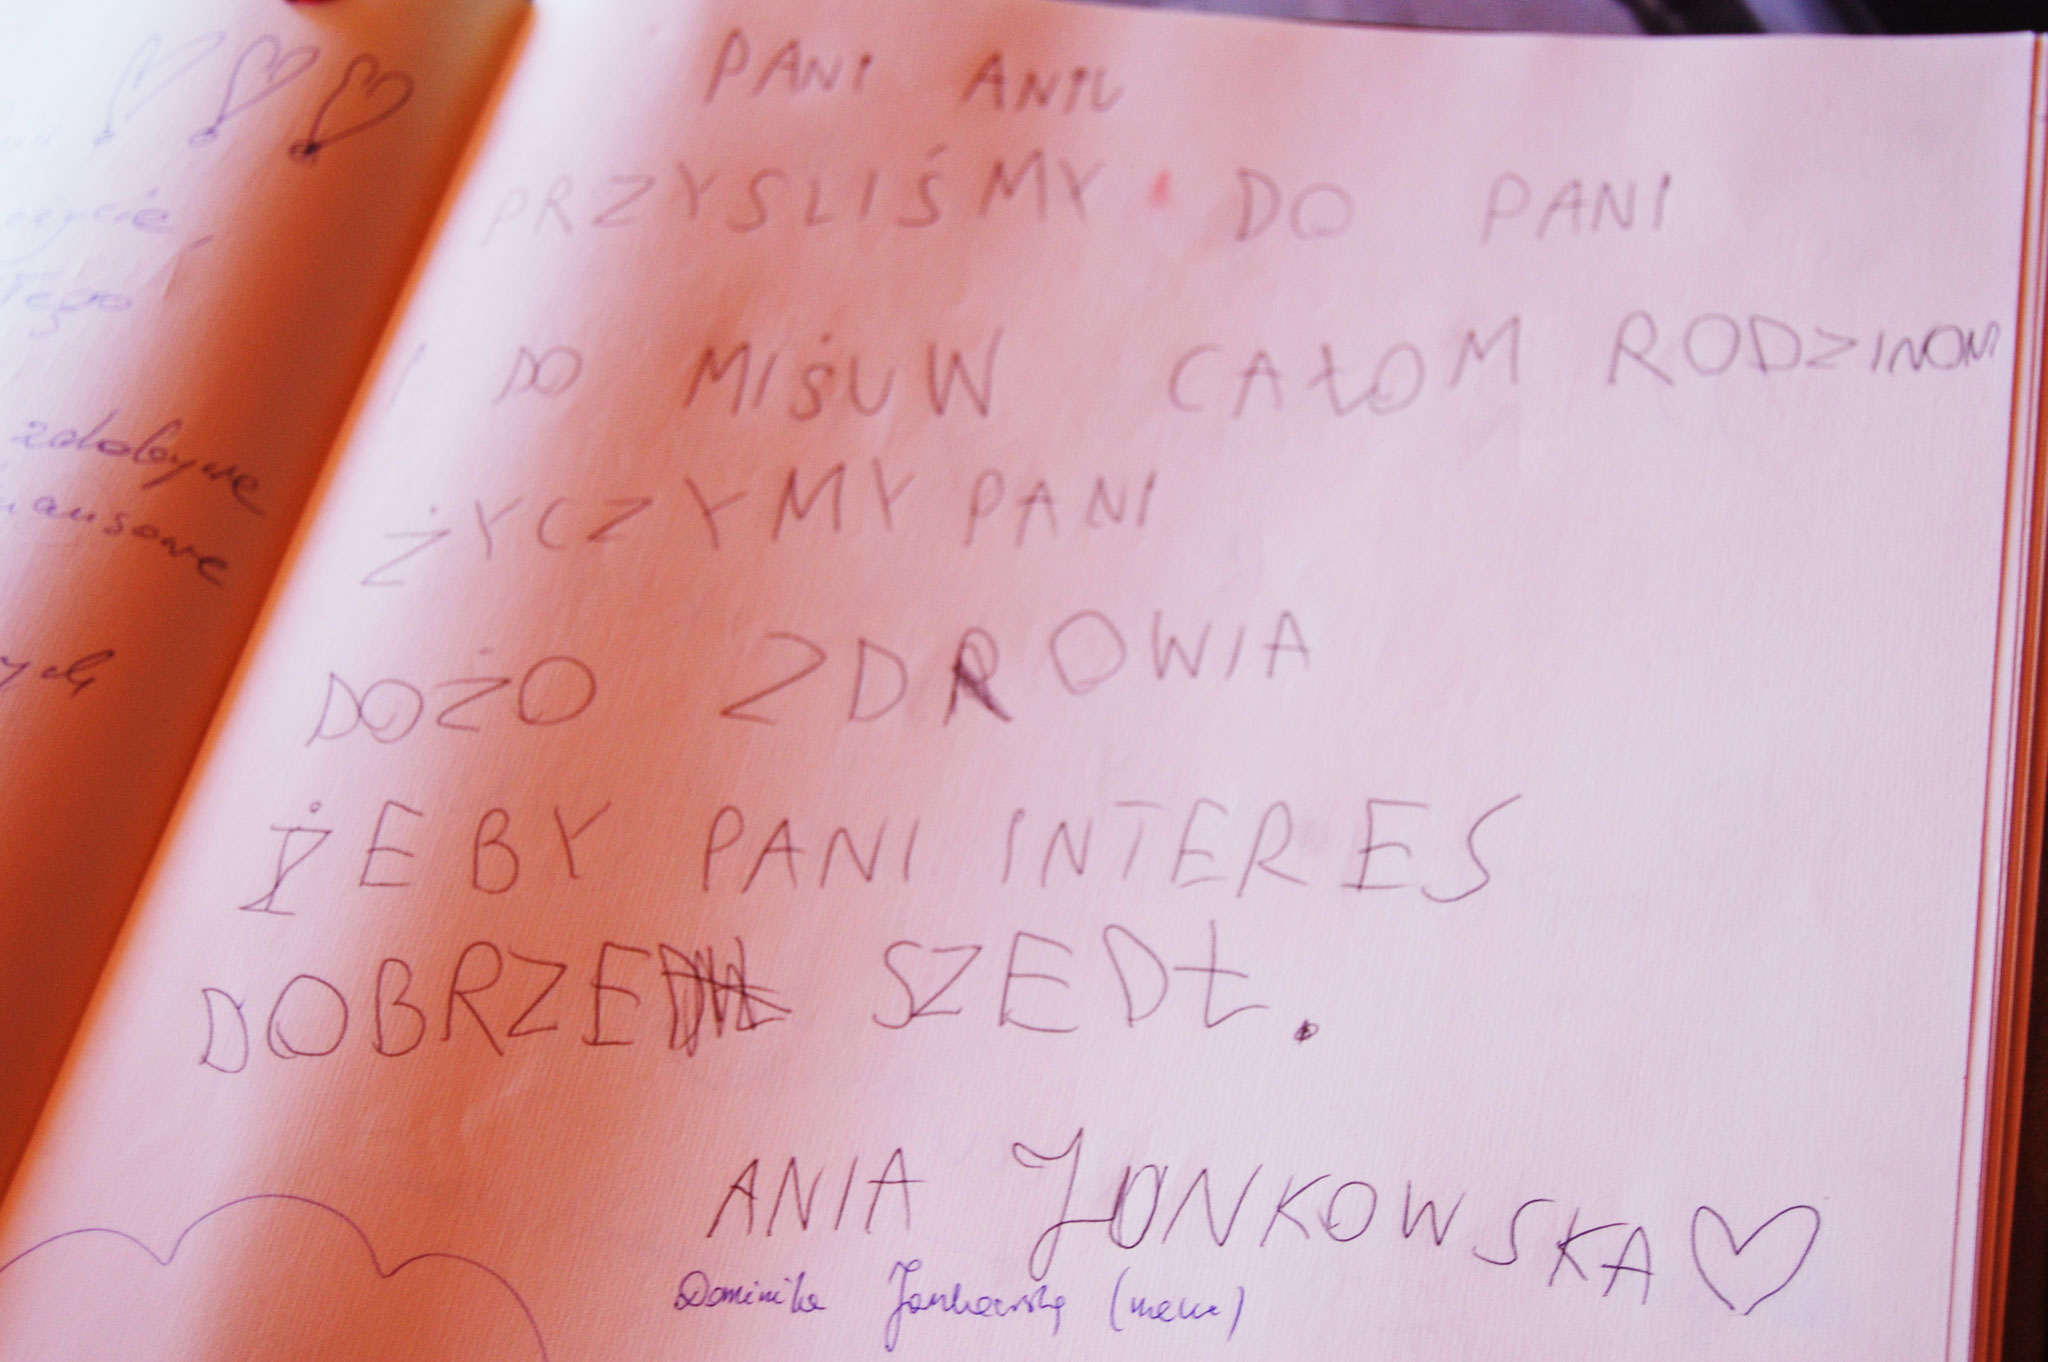 zdobywe
PANI ANIU
PRZYSLIŚMY DO PANI
I DO MIŚUW CAŁOM RODZINOM
ŻYCZYMY PANI
DOŻO ZDROWIA
ŻEBY PANI INTERES
DOBRZE SZEDŁ.
ANIA JONKOWSKA
Dominika Jankowska (mama)